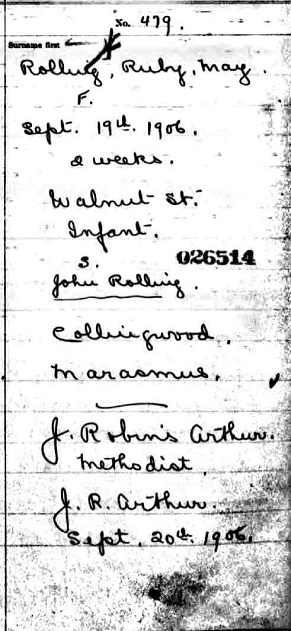 No. 479.
Surname first
Rolling, Ruby, May.
F.
Sept. 19th. 1906.
2 weeks.
Walnut St.
Infant.
S.
026514
John Rolling.
Collingwood.
Marasmus.
J. Robins Arthur.
Methodist.
J. R. Arthur.
Sept. 20th. 1906.